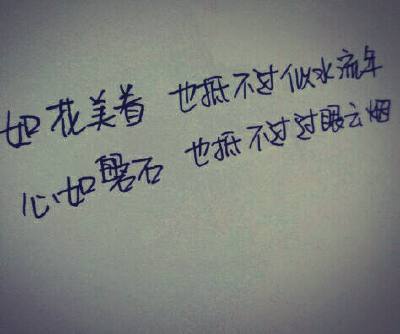 如花美眷 也抵不过似水流年
心如磐石 也抵不过过眼云烟